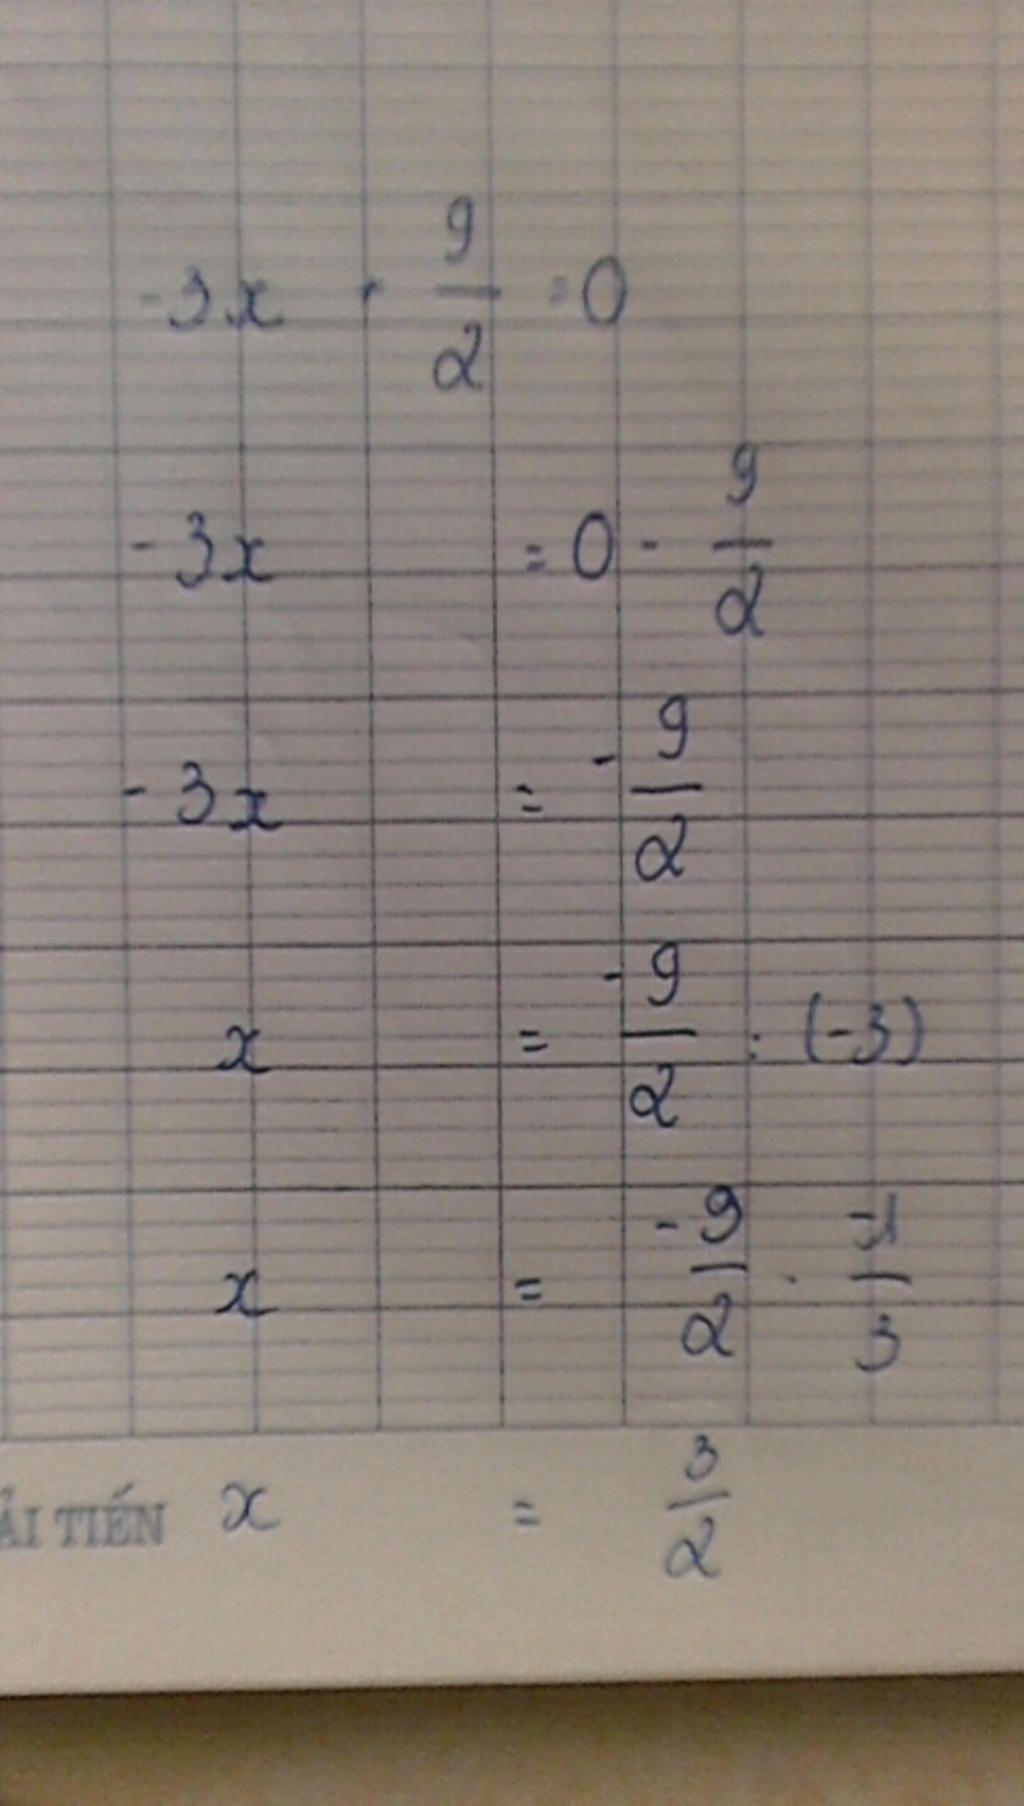 -3x + 9/2 = 0
-3x = 0 - 9/2
-3x = -9/2
x = -9/2 : (-3)
x = -9/2 . -1/3
ẢI TIẾN x = 3/2